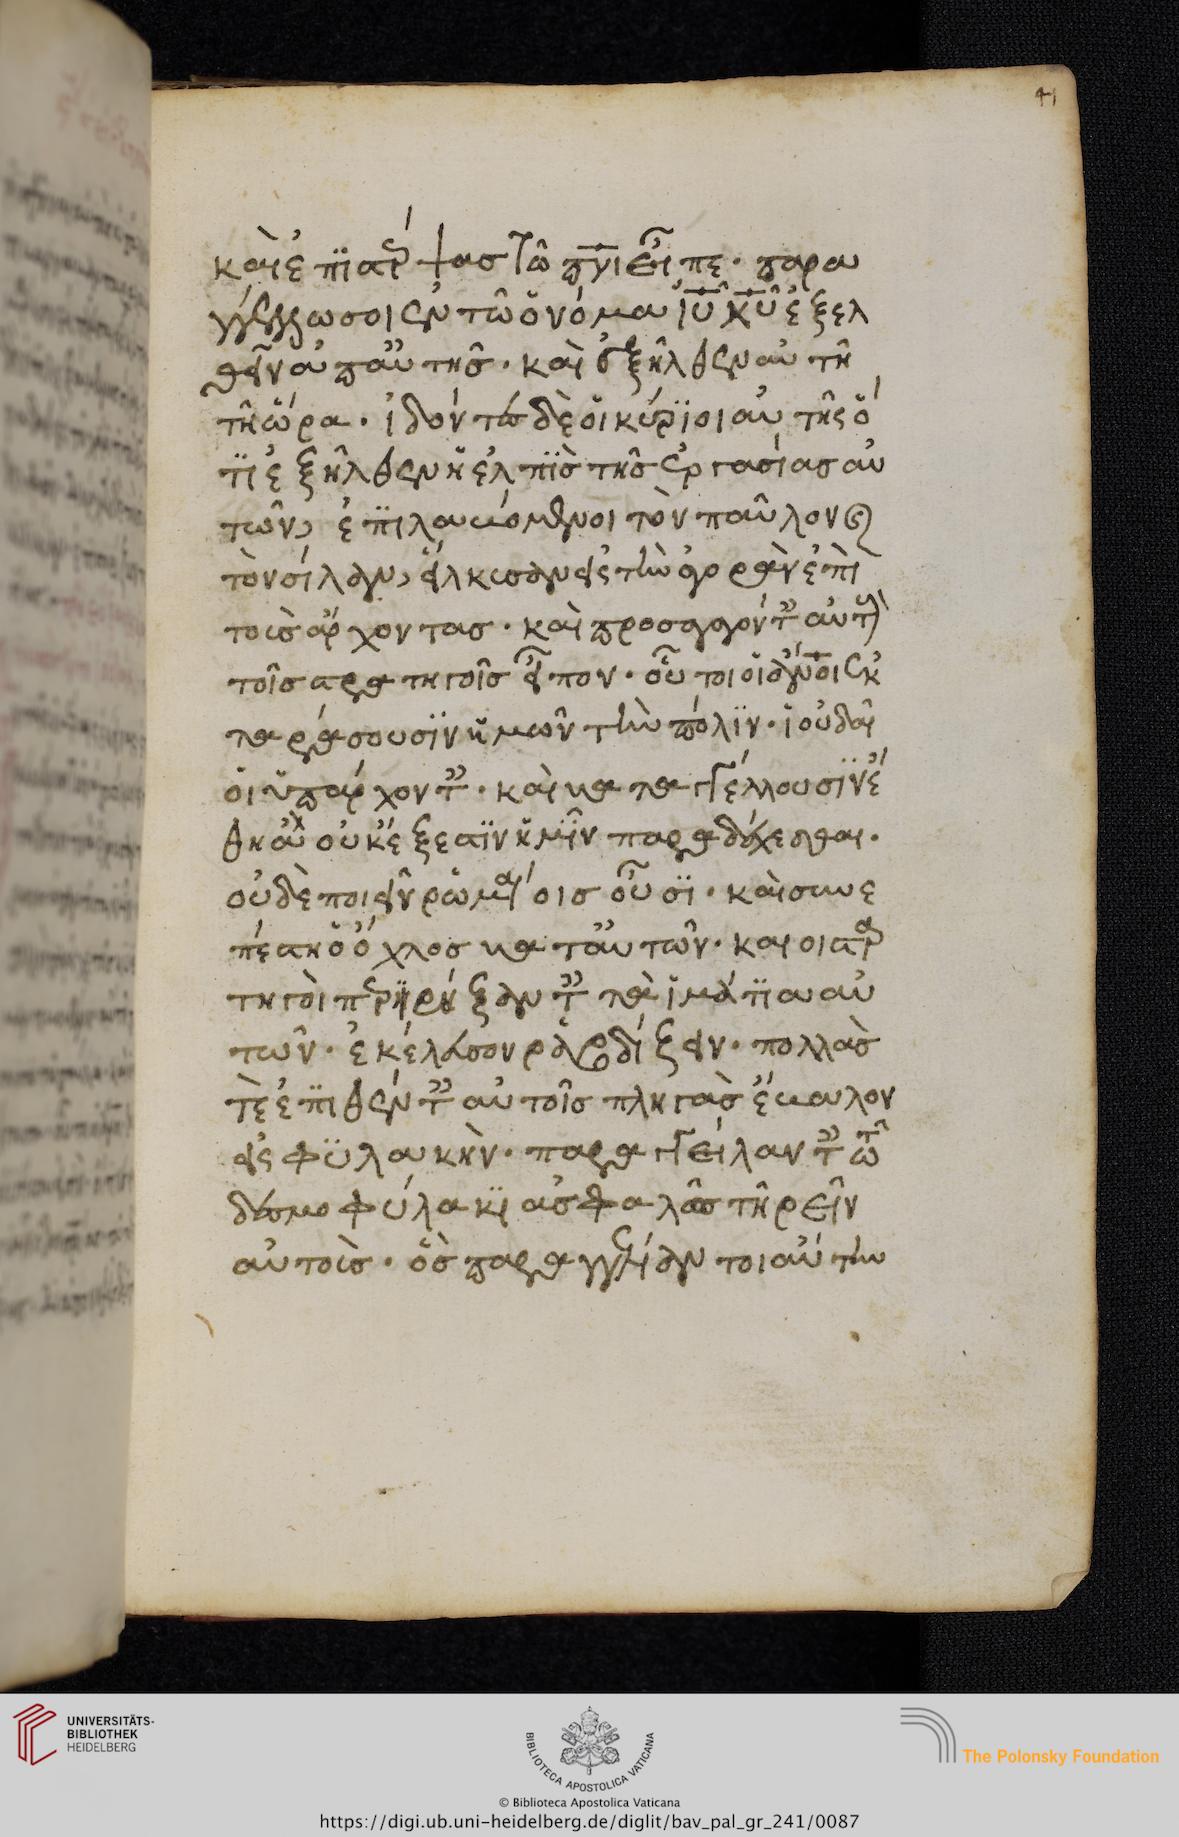 41
καὶ ἐπιστρέψας τῶ πνι εἶπε· παρα
γγέλλω σοι ἐν τῶ ὀνόματι ἰυ χυ ἐξελ
θεῖν ἀπ αὐτῆς· καὶ ἐξῆλθεν αὐτῆ
τῆ ὥρα· ἰδόντες δὲ οἱ κύριοι αὐτῆς ὅ
τι ἐξῆλθεν ἡ ἐλπὶς τῆς ἐργασίας αὐ
τῶν, ἐπιλαβόμενοι τὸν παῦλον ϗ
τὸν σίλαν, εἵλκυσαν εἰς τὴν ἀγορὰν ἐπὶ
τοὺς ἄρχοντας· καὶ προσαγαγόντες αὐτοὺς
τοῖς στρατηγοῖς εἶπον· οὗτοι οἱ ἄνοι ἐκ
ταράσουσιν ἡμῶν τὴν πόλιν· ἰουδαῖ
οι ὑπάρχοντες· καὶ καταγγέλλουσιν ἔ
θη ἃ οὐκ ἔξεστιν ἡμῖν παραδέχεσθαι·
οὐδὲ ποιεῖν ῥωμαίοις οὖσι· καὶ συνε
πέστη ὁ ὄχλος κατ αὐτῶν· καὶ οἱ στρα
τηγοὶ περιρήξαντες τὰ ἱμάτια αὐ
τῶν· ἐκέλευον ῥαβδίζειν· πολλὰς
τὲ ἐπιθέντες αὐτοῖς πληγὰς ἔβαλον
εἰς φυλακὴν· παραγγείλαντες τῶ
δεσμοφύλακι ἀσφαλῶς τηρεῖν
αὐτοὺς· ὃς παραγγελίαν τοιαύτην
UNIVERSITÄTS-
BIBLIOTHEK
HEIDELBERG
BIBLIOTECA APOSTOLICA VATICANA
The Polonsky Foundation
© Biblioteca Apostolica Vaticana
https://digi.ub.uni-heidelberg.de/diglit/bav_pal_gr_241/0087